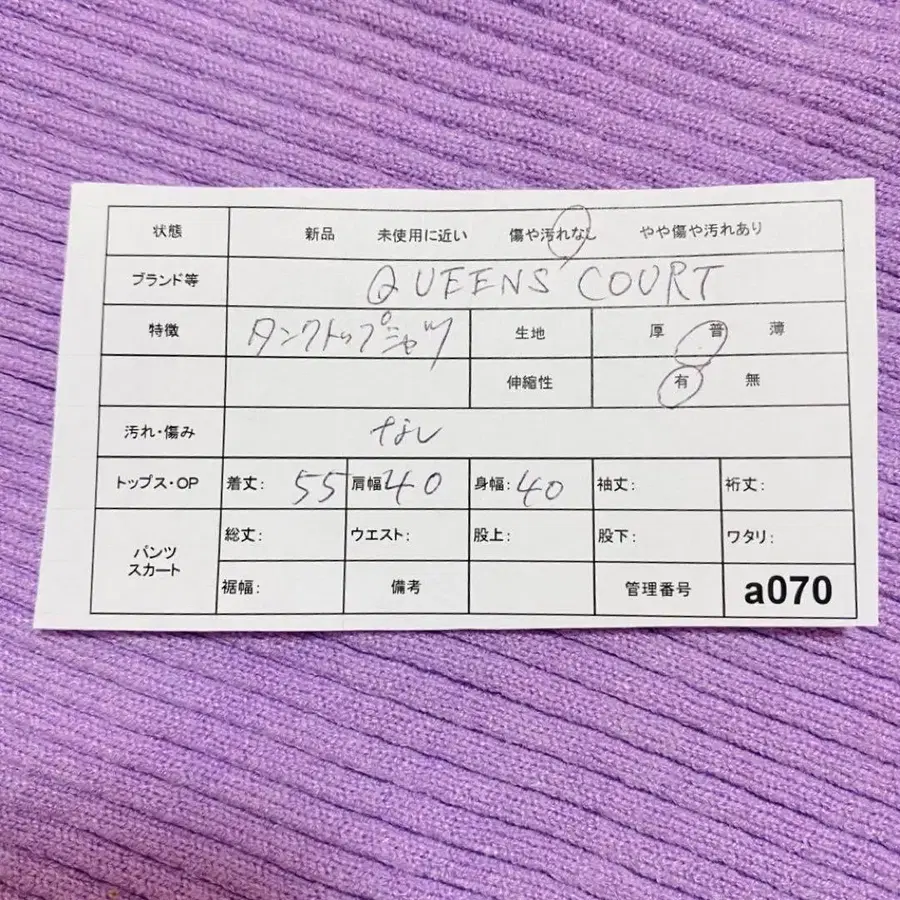 状態 新品 未使用に近い 傷や汚れなし やや傷や汚れあり
ブランド等 QUEENS COURT
特徴 タンクトップシャツ 生地 厚 普 薄
伸縮性 有 無
汚れ・傷み なし
トップス・OP 着丈: 55 肩幅 40 身幅: 40 袖丈: 裄丈:
パンツ スカート 総丈: ウエスト: 股上: 股下: ワタリ:
裾幅: 備考 管理番号 a070